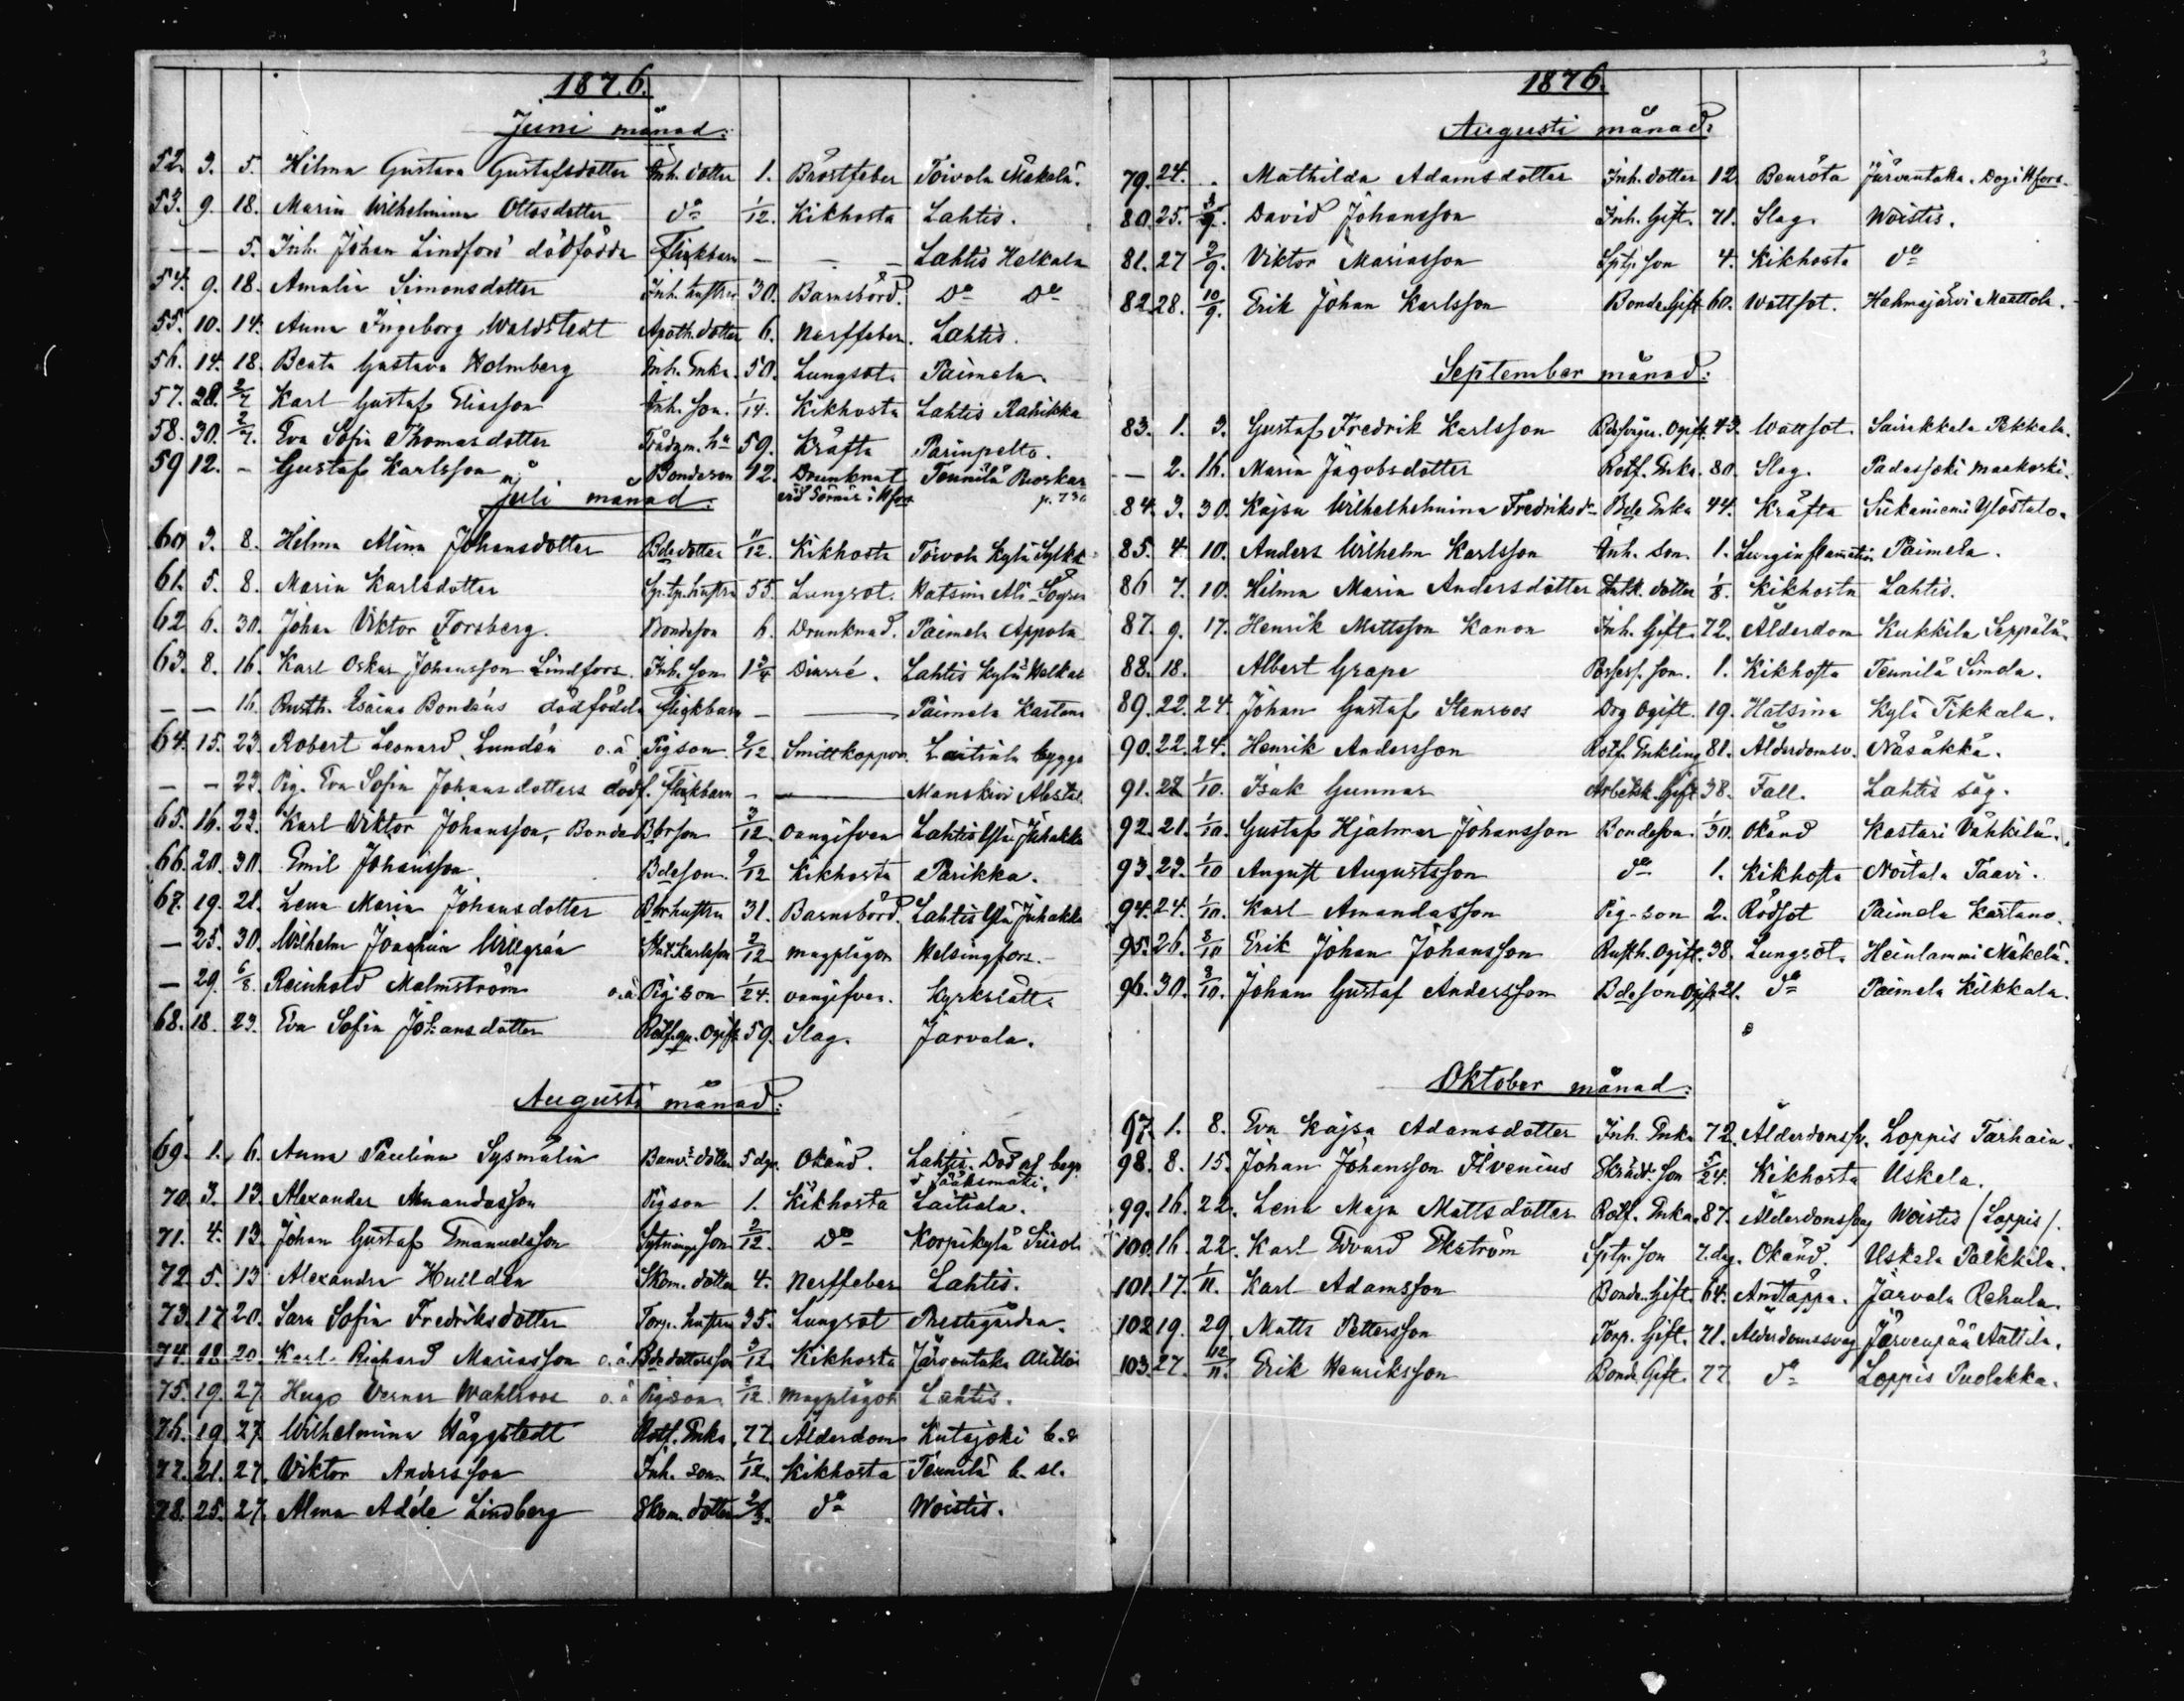 1876.
Juni månad:
52. 3. 5. Hilma Gustava Gustafsdotter Inh. dotter 1. Bröstfeber Toivola Mäkelä.
53. 9. 18. Maria Wilhelmina Ottosdotter do 1/12. Kikhosta Lahtis.
— — 5. Inh. Johan Lindfors' dödfödda flickbarn — — — Lahtis Helkala
54. 9. 18. Amalia Simonsdotter Inh. hustru 30. Barnsbörd. Do Do
55. 10. 14. Anna Ingeborg Waldstedt Apoth. dotter 6. Nerffeber. Lahtis.
56. 14. 18. Beata Gustava Holmberg Inh. Enka. 50. Lungsot. Paimela.
57. 28. 2/7 Karl Gustaf Eliasson Inh. son. 1/14. Kikhosta Lahtis Rahikka
58. 30. 2/7. Eva Sofia Thomasdotter 59. Kräfta Parinpelto.
59 12. - Gustaf Karlsson Bondeson 12. Drunknat Tennilä
vid Sörnäs i Hfors
Juli månad.
60 3. 8. Hilma Alina Johansdotter Bdedotter 11/12. Kikhosta Toivola Kylä
61. 5. 8. Maria Karlsdotter Sp.tp. hustru 55. Lungsot. Hatsina Ali-
62 6. 30. Johan Viktor Forsberg. Bondeson 6. Drunknad. Paimela Appola
63. 8. 16. Karl Oskar Johansson Lindfors. Inh. son 1 3/4 Diarré. Lahtis Kylä Helkal
— — 16. Rusth. Esaias Bondéns dödfödda flickbarn — — Paimela Kartano
64. 15. 23. Robert Leonard Lundén o.ä Pigson 9/12. Smittkoppor. Laitiala bygge
— — 23. Pig. Eva Sofia Johansdotters dödf. flickbarn — — Manskivi Alestal
65. 16. 23. Karl Viktor Johansson, Bonde Bbrson 3/12. oangifven Lahtis Ylä Juhakka
66. 20. 30. Emil Johansson. Bdeson. 9/12 Kikhosta Parikka.
67. 19. 21. Lena Maria Johansdotter Bbrhustru 31. Barnsbörd. Lahtis Ylä Juhakka
— 25. 30. Wilhelm Joachim Willgrén 2/12 magplågor Helsingfors.
— 29. 6/8. Reinhold Malmström o.ä Pigson 1/24. oangifven. Kyrkslätt.
68. 18. 23. Eva Sofia Johansdotter Rotf.qu. Ogift 59. Slag. Järvala.
Augusti månad:
69. 1. 6. Anna Paulina Sysmälin Banv. dotter 5 dgr. Okänd. Lahtis. Död af begr.
i Jääksmäki.
70. 3. 13. Alexander Amandasson Pigson 1. Kikhosta Laitiala.
71. 4. 13. Johan Gustaf Emanuelsson Sytnings son 2/12. Do Korpikylä Siisola
72. 5. 13 Alexandra Huildén Skom. dotter 4. Nerffeber Lahtis.
73. 17 20. Sara Sofia Fredriksdotter Torp. hustru 35. Lungsot Prestgården.
74. 18. 20. Karl Richard Mariasson o.ä. Bdedotterson 3/12. Kikhosta Järventaka
75. 19. 27 Hugo Verner Wahlroos o.ä Pigson 2/12. Magplågor Lahtis.
76. 19. 27 Wilhelmina Häggstedt Rotf. Enka. 77. Ålderdom Kutajoki
77. 21. 27. Viktor Andersson Inh. son. 1/12. Kikhosta Tennilä
78. 25. 27. Alma Adéle Lindberg Skom. dotter 2/3. do Woistis.
1876.
Augusti månad:
79. 24. . Mathilda Adamsdotter Inh. dotter 12. Benröta Järventaka. Dog i Hfors.
80. 25. 3/9. David Johansson Inh. Gift. 71. Slag. Woistis.
81. 27 3/9. Viktor Mariasson Sptp. son 4. Kikhosta do
82. 28. 10/9. Erik Johan Karlsson Bonde Gift 60. Wattsot. Hahmajärvi Maattola.
September månad:
83. 1. 3. Gustaf Fredrik Karlsson Ogift 43. Wattsot. Sairakkala Pekkala.
— 2. 16. Maria Jacobsdotter Rotf. Enka. 80. Slag. Padasjoki Maakeski.
84. 3. 30. Kajsa Wilhelhelmina Fredriksdr Bde Enka 44. Kräfta Siikaniemi Ylöstalo.
85. 4. 10. Anders Wilhelm Karlsson Inh. son. 1. Lunginflamation Paimela.
86 7. 10. Hilma Maria Andersdotter dotter 1/8. Kikhosta Lahtis.
87. 9. 17. Henrik Mattsson Kanon Inh. Gift. 72. Ålderdom Kukkila Seppälä.
88. 18. Albert Grape Possess. son. 1. Kikhosta Tennilä Simola.
89. 22. 24. Johan Gustaf Stenroos Drg Ogift. 19. Hatsina Kylä Tikkala.
90. 22. 24. Henrik Andersson Rotf. Enkling 81. Ålderdomsv. Näsäkkä.
91. 27 1/10. Isak Gunnar Arbetsk. Gift 38. Fall. Lahtis såg.
92. 21. 1/10. Gustaf Hjalmar Johansson Bondeson. 1/30. Okänd Kastari Vähkilä.
93. 23. 1/10 August Augustsson do 1. Kikhosta Noitala Taavi.
94. 24. 1/10. Karl Amandasson Pig-son 2. Rödsot Paimela Kartano.
95. 26. 8/10 Erik Johan Johansson Rusth. Ogift. 38. Lungsot. Heinlammi Mäkelä.
96. 30. 8/10. Johan Gustaf Andersson Bdeson Ogift 21. do Paimela Kilkkala.
Oktober månad:
97. 1. 8. Eva Kajsa Adamsdotter Inh. Enka 72. Ålderdomssv. Loppis Tarhain.
98. 8. 15. Johan Johansson Ilvenius Skrädd. son 5/24. Kikhosta Uskela.
99. 16. 22. Lena Maja Mattsdotter Rotf. Enka. 87. Ålderdomssvag Woistis (Loppis).
100. 16. 22. Karl Edvard Ekström Sptp. son 7.dag. Okänd. Uskela Paekkila.
101. 17. 1/11. Karl Adamsson Bonde Gift. 64. Andtäppa. Järvala Rehula.
102 19. 29. Matts Pettersson Torp. Gift. 71. Ålderdomssvag Järvenpää Anttila.
103. 27. 12/11. Erik Henriksson Bonde Gift. 77 do Loppis Puolakka.